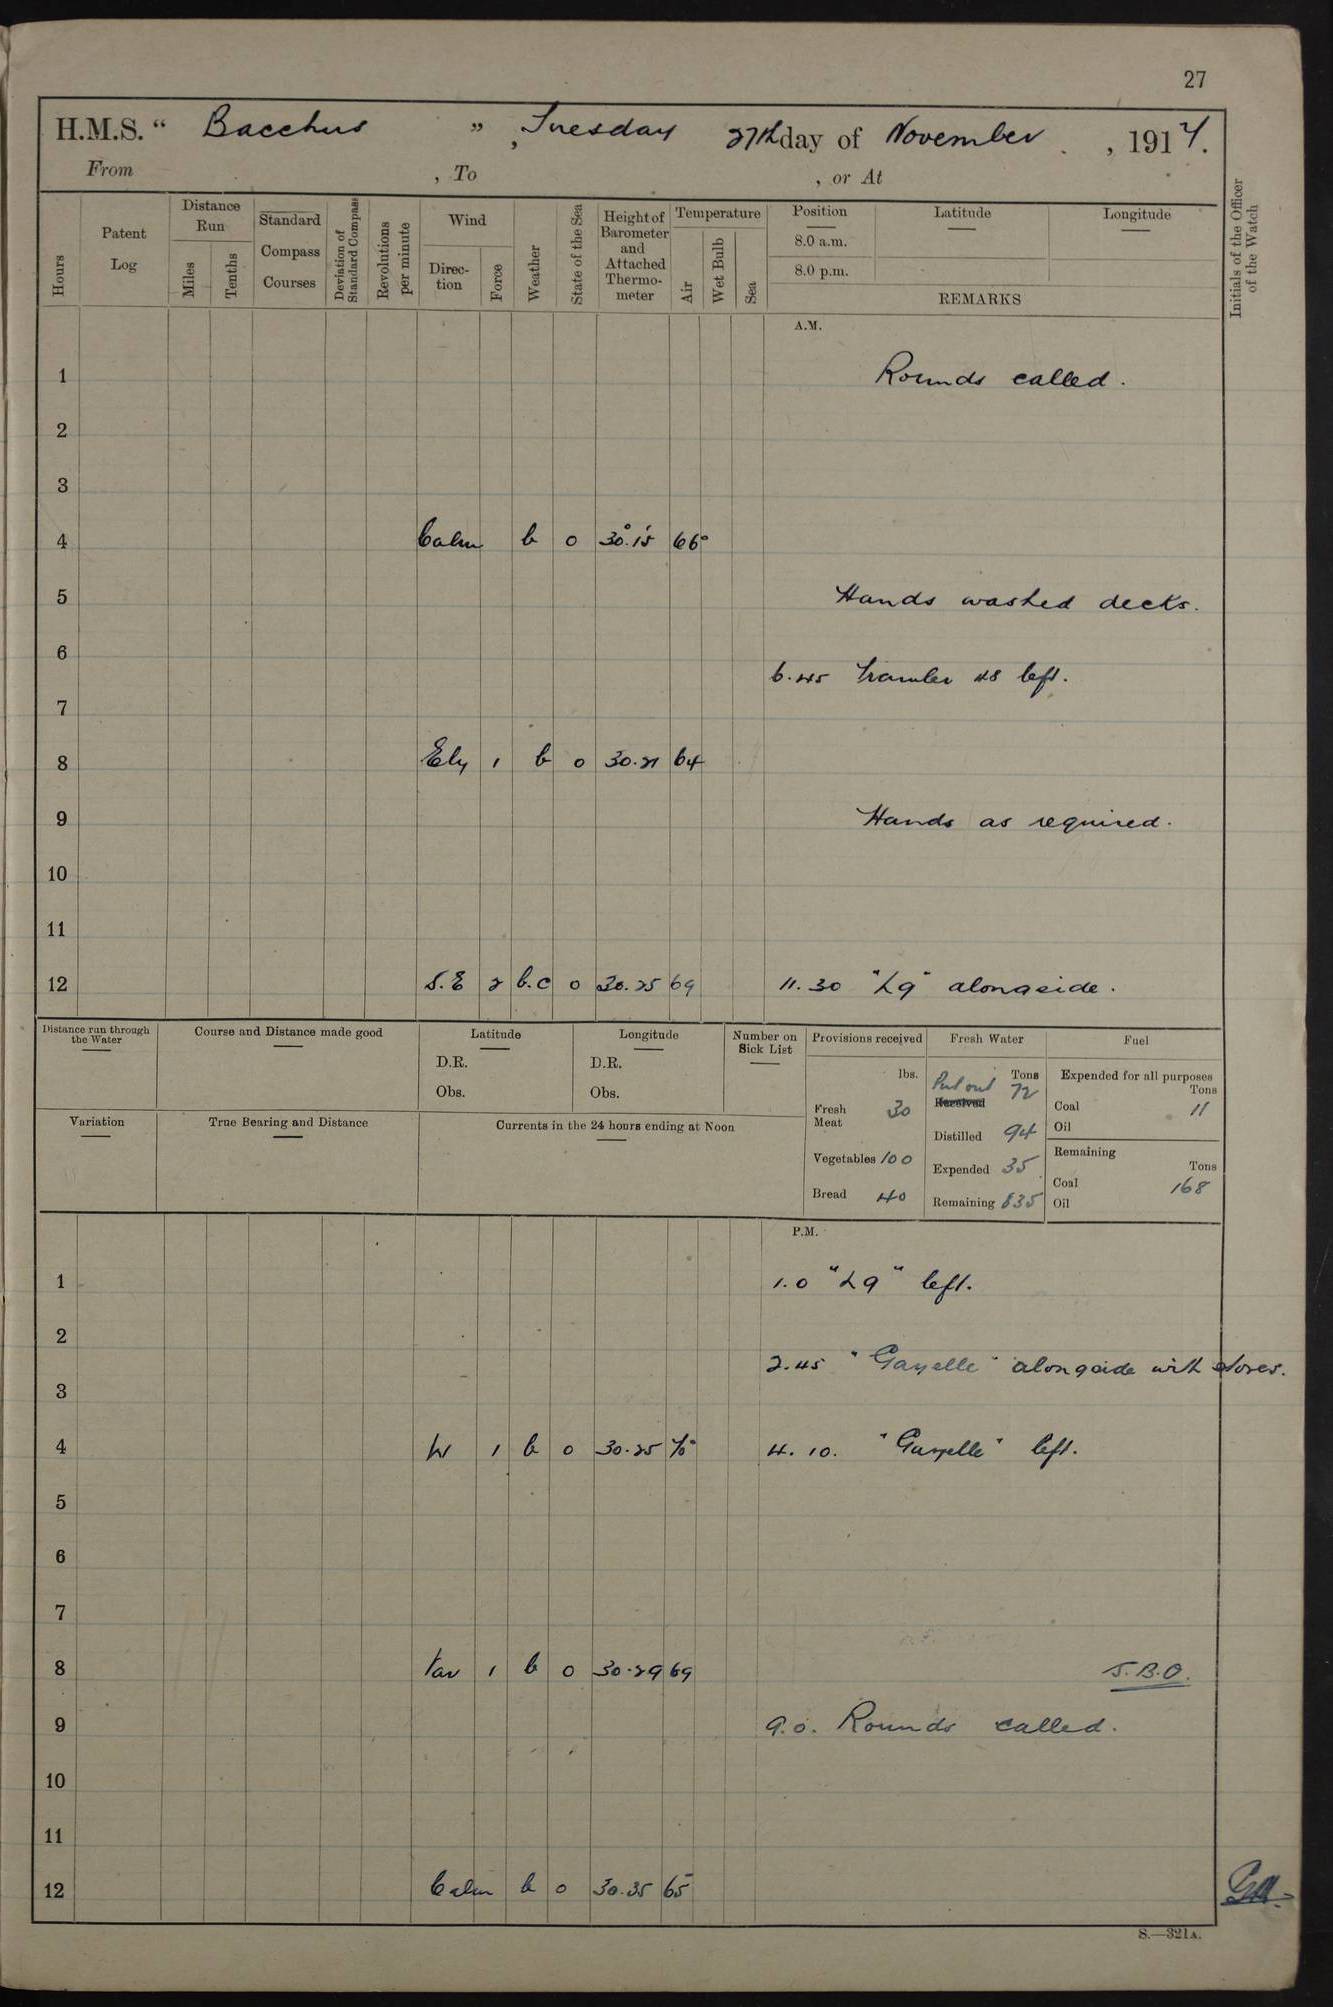 27
H.M.S. “ Bacchus ” , Tuesday 27th day of November , 1917.
From , To , or At
Hours
Patent Log
Distance Run
Miles
Tenths
Standard Compass Courses
Deviation of Standard Compass
Revolutions per minute
Wind
Direc- tion
Force
Weather
State of the Sea
Height of Barometer and Attached Thermo- meter
Temperature
Air
Wet Bulb
Sea
Position
8.0 a.m.
8.0 p.m.
Latitude
Longitude
REMARKS
Initials of the Officer of the Watch
A.M.
1 Rounds called.
2
3
4 Calm b 0 30.15 66°
5 Hands washed decks.
6
6.45 Trawler 48 left.
7
8 Ely 1 b 0 30.21 64
9 Hands as required.
10
11
12 S.E 2 b.c 0 30.25 69 11.30 "L9" alongside.
Distance run through the Water
Course and Distance made good
Latitude
D.R.
Obs.
Longitude
D.R.
Obs.
Number on Sick List
Provisions received
lbs.
Fresh Meat 30
Vegetables 100
Bread 40
Fresh Water
Tons
Put out 72
Received
Distilled 94
Expended 35
Remaining 835
Fuel
Expended for all purposes
Tons
Coal 11
Oil
Remaining
Tons
Coal 168
Oil
Variation
True Bearing and Distance
Currents in the 24 hours ending at Noon
P.M.
1 1.0 "L9" left.
2
2.45 "Gazelle" alongside with stores.
3
4 W 1 b 0 30.25 70° 4.10. "Gazelle" left.
5
6
7
8 Var 1 b 0 30.29 69 J.B.O.
9 9.0. Rounds called.
10
11
12 Calm b 0 30.35 65
S.—321A.